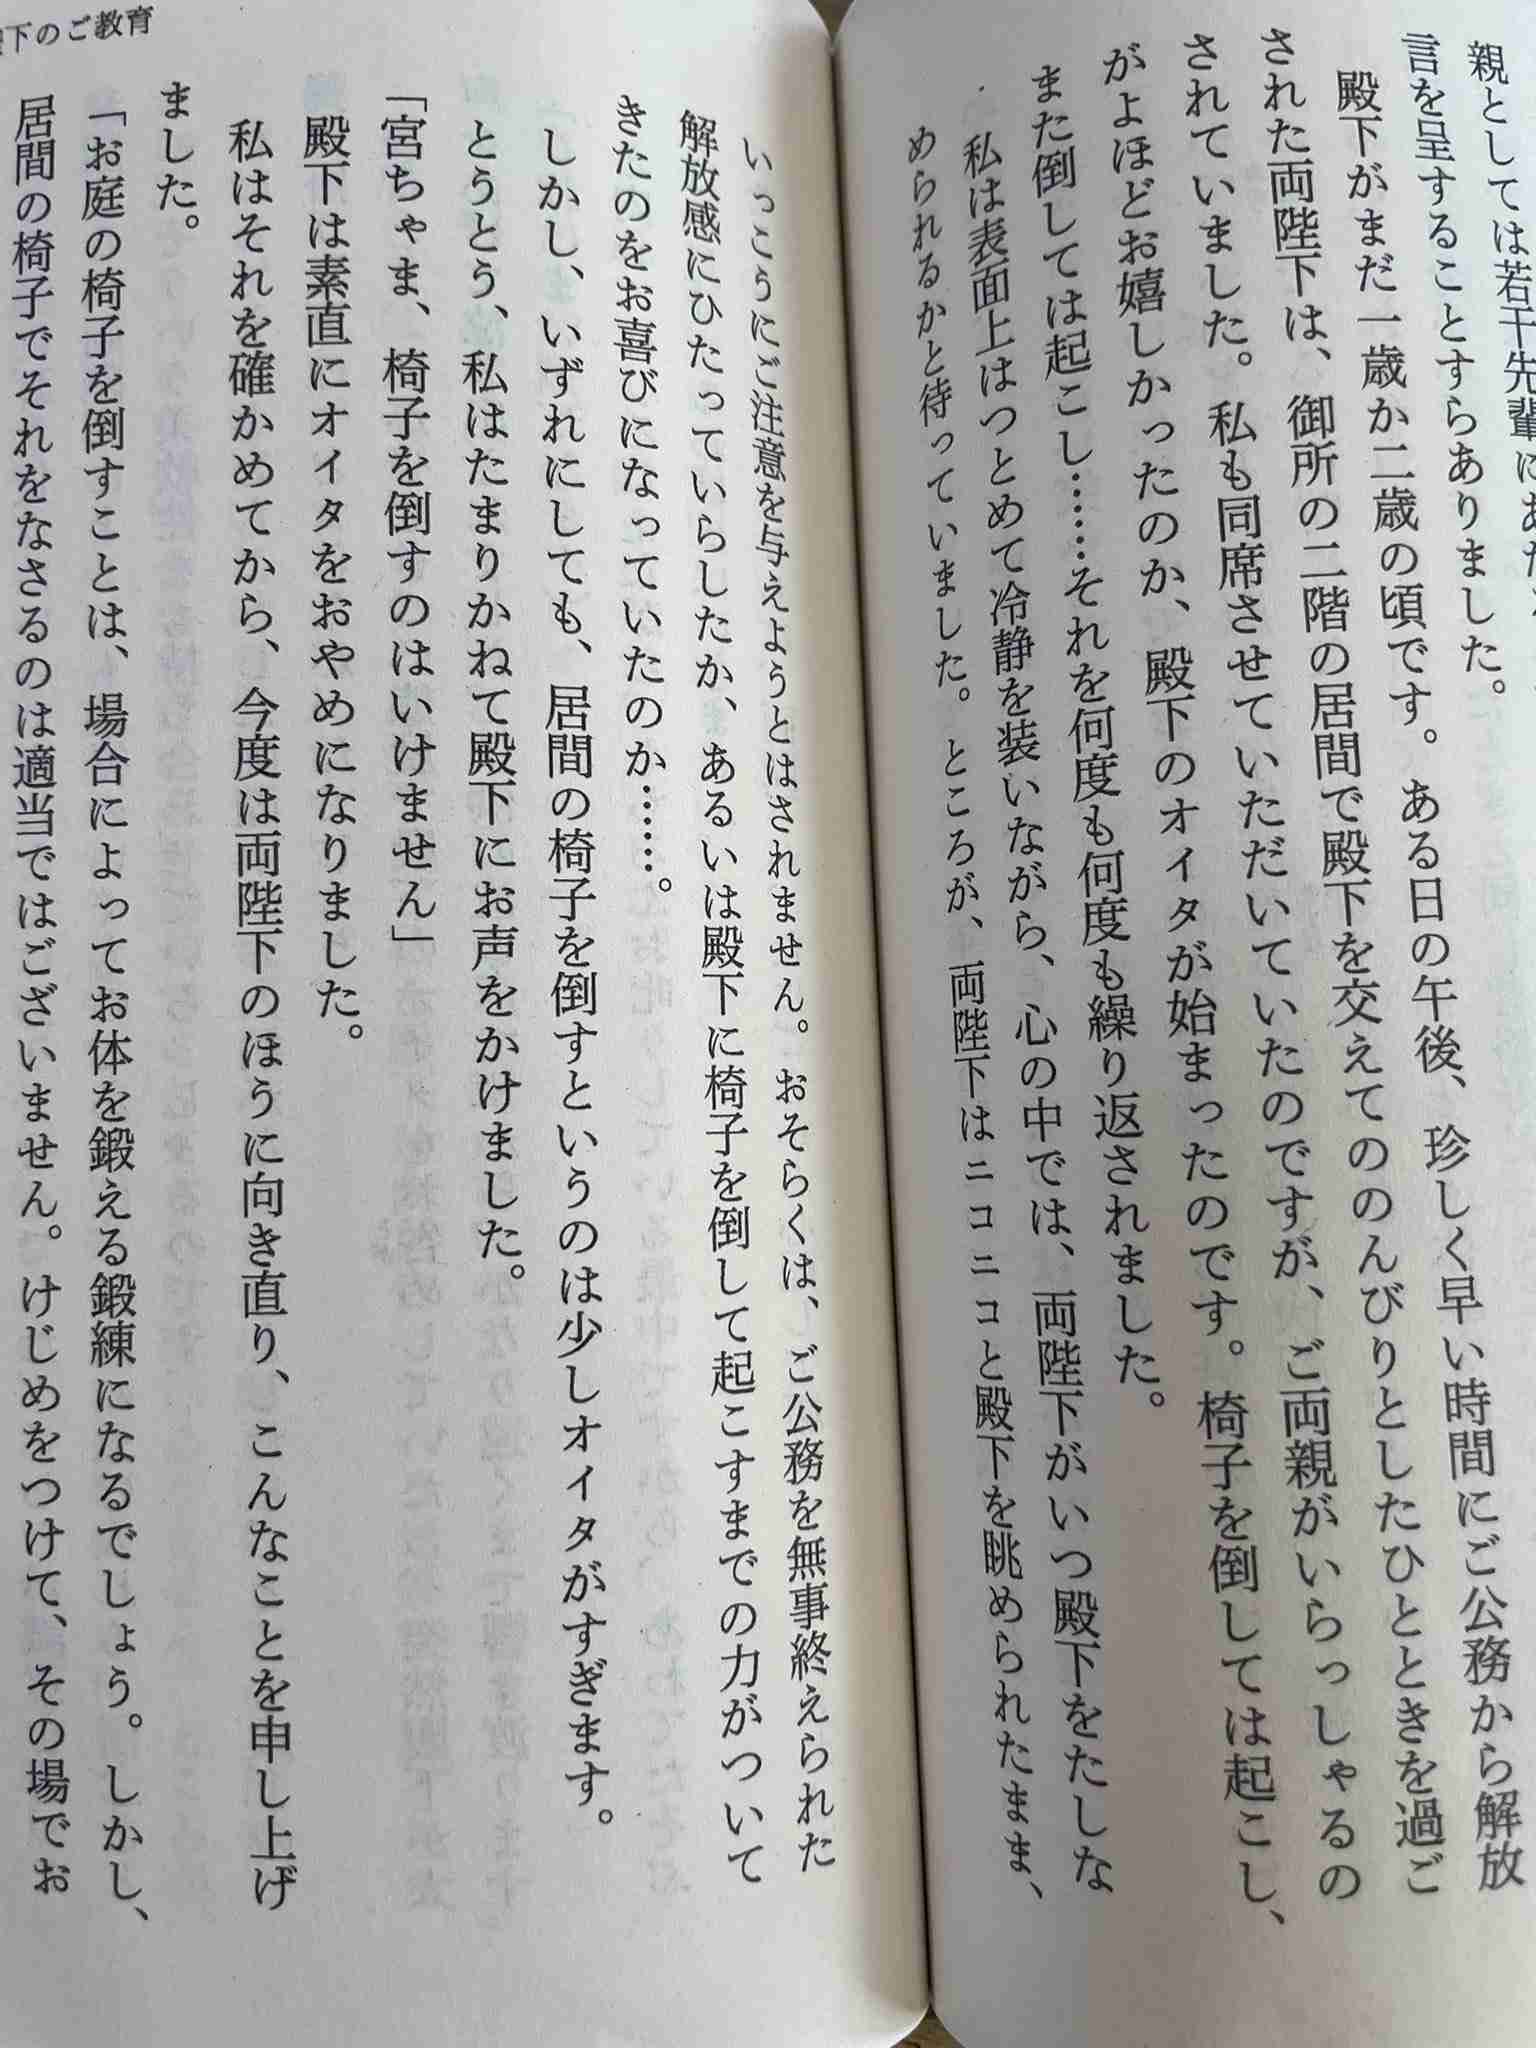 親としては若干先輩にあた
言を呈することすらありました。
殿下がまだ一歳か二歳の頃です。ある日の午後、珍しく早い時間にご公務から解放
された両陛下は、御所の二階の居間で殿下を交えてののんびりとしたひとときを過ご
されていました。私も同席させていただいていたのですが、ご両親がいらっしゃるの
がよほどお嬉しかったのか、殿下のオイタが始まったのです。椅子を倒しては起こし、
また倒しては起こし……それを何度も何度も繰り返されました。
私は表面上はつとめて冷静を装いながら、心の中では、両陛下がいつ殿下をたしな
められるかと待っていました。ところが、両陛下はニコニコと殿下を眺められたまま、
いっこうにご注意を与えようとはされません。おそらくは、ご公務を無事終えられた
解放感にひたっていらしたか、あるいは殿下に椅子を倒して起こすまでの力がついて
きたのをお喜びになっていたのか……。
しかし、いずれにしても、居間の椅子を倒すというのは少しオイタがすぎます。
とうとう、私はたまりかねて殿下にお声をかけました。
「宮ちゃま、椅子を倒すのはいけません」
殿下は素直にオイタをおやめになりました。
私はそれを確かめてから、今度は両陛下のほうに向き直り、こんなことを申し上げ
ました。
「お庭の椅子を倒すことは、場合によってお体を鍛える鍛練になるでしょう。しかし、
居間の椅子でそれをなさるのは適当ではございません。けじめをつけて、その場でお
下のご教育